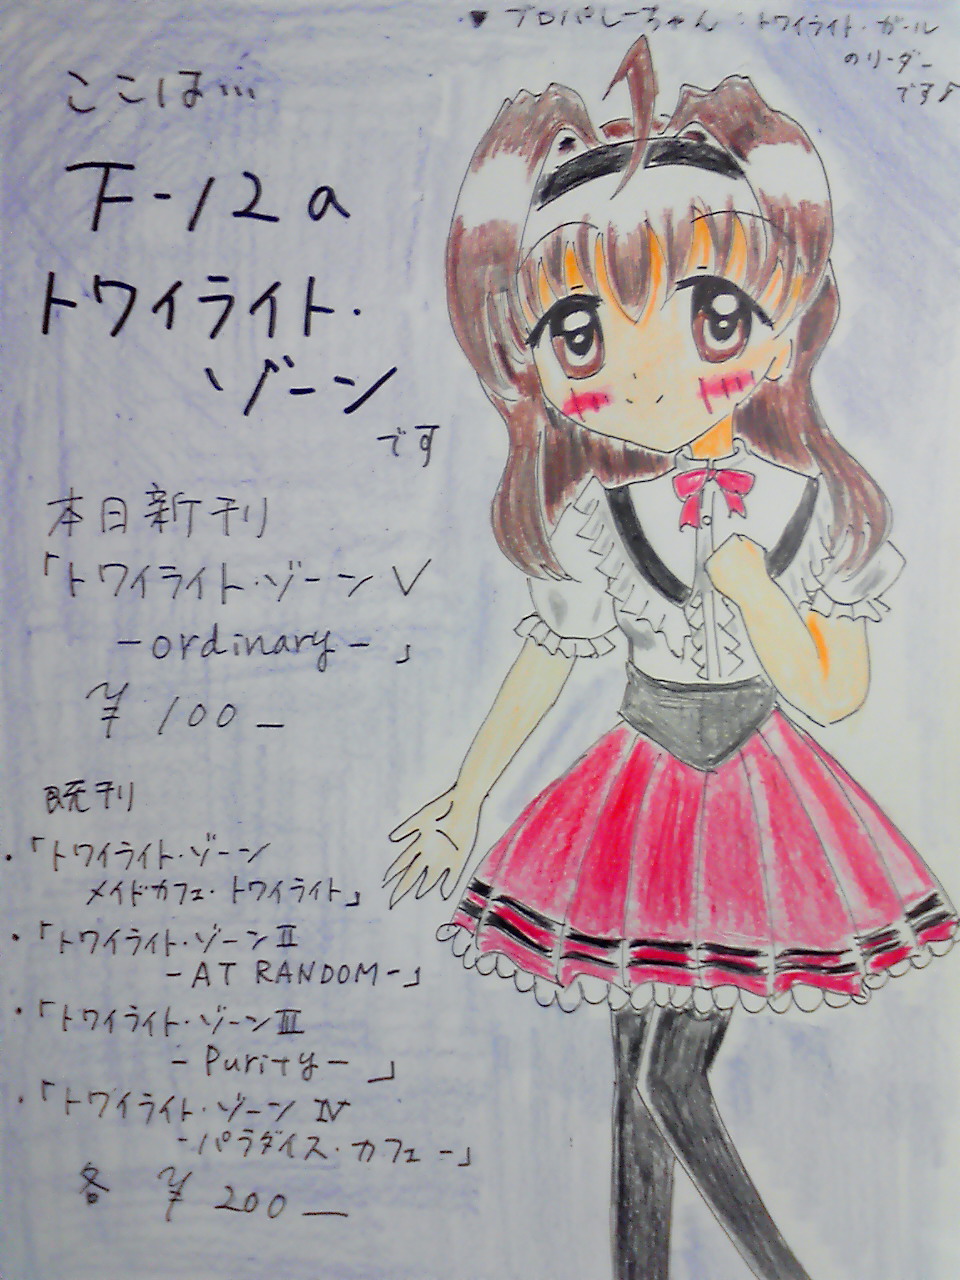 ▼ プロパしーちゃん:トワイライト・ガール
のリーダー
です♪
ここは…
下-12a
トワイライト・
ゾーン
です
本日新刊
「トワイライト・ゾーンⅤ
-ordinary-」
¥100-
既刊
・「トワイライト・ゾーン
メイドカフェ・トワイライト」
・「トワイライト・ゾーンⅡ
-AT RANDOM-」
・「トワイライト・ゾーンⅢ
-Purity-」
・「トワイライト・ゾーンⅣ
-パラダイス・カフェ-」
各 ¥200-